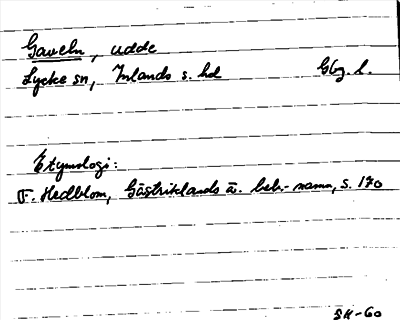 Gaveln, udde
Lycke sn, Inlands s. hd Gbg. l.
Etymologi:
F. Hedblom, Gästriklands ä. beb.-namn, s. 170
SK-60